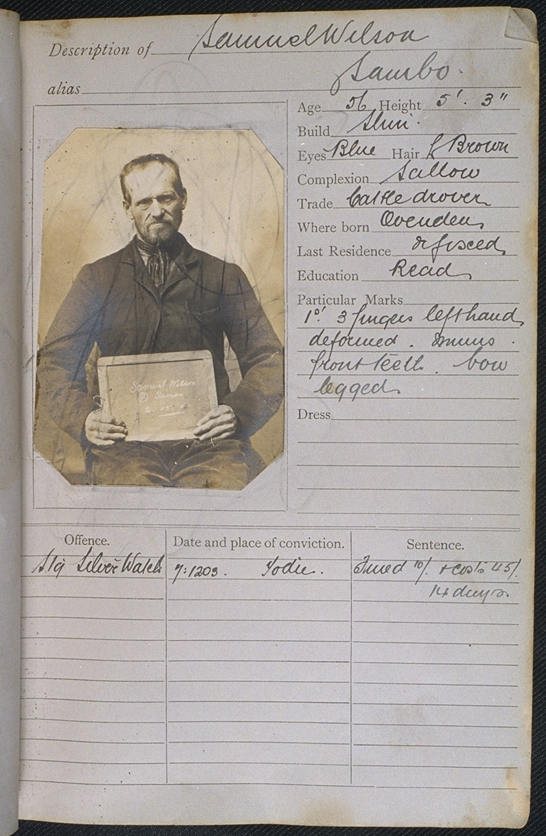 Description of Samuel Wilson
alias Sambo.
Age 56 Height 5'. 3"
Build Slim.
Eyes Blue Hair L Brown
Complexion Sallow
Trade Cattle drover
Where born Ovenden
Last Residence No fixed
Education Read
Particular Marks
1st 3 fingers left hand
deformed. minus.
front teeth. bow
legged
Dress
Samuel Wilson
Offence. Date and place of conviction. Sentence.
Stg Silver Watch Todn. Fined 10/. + costs 45/.
14 days